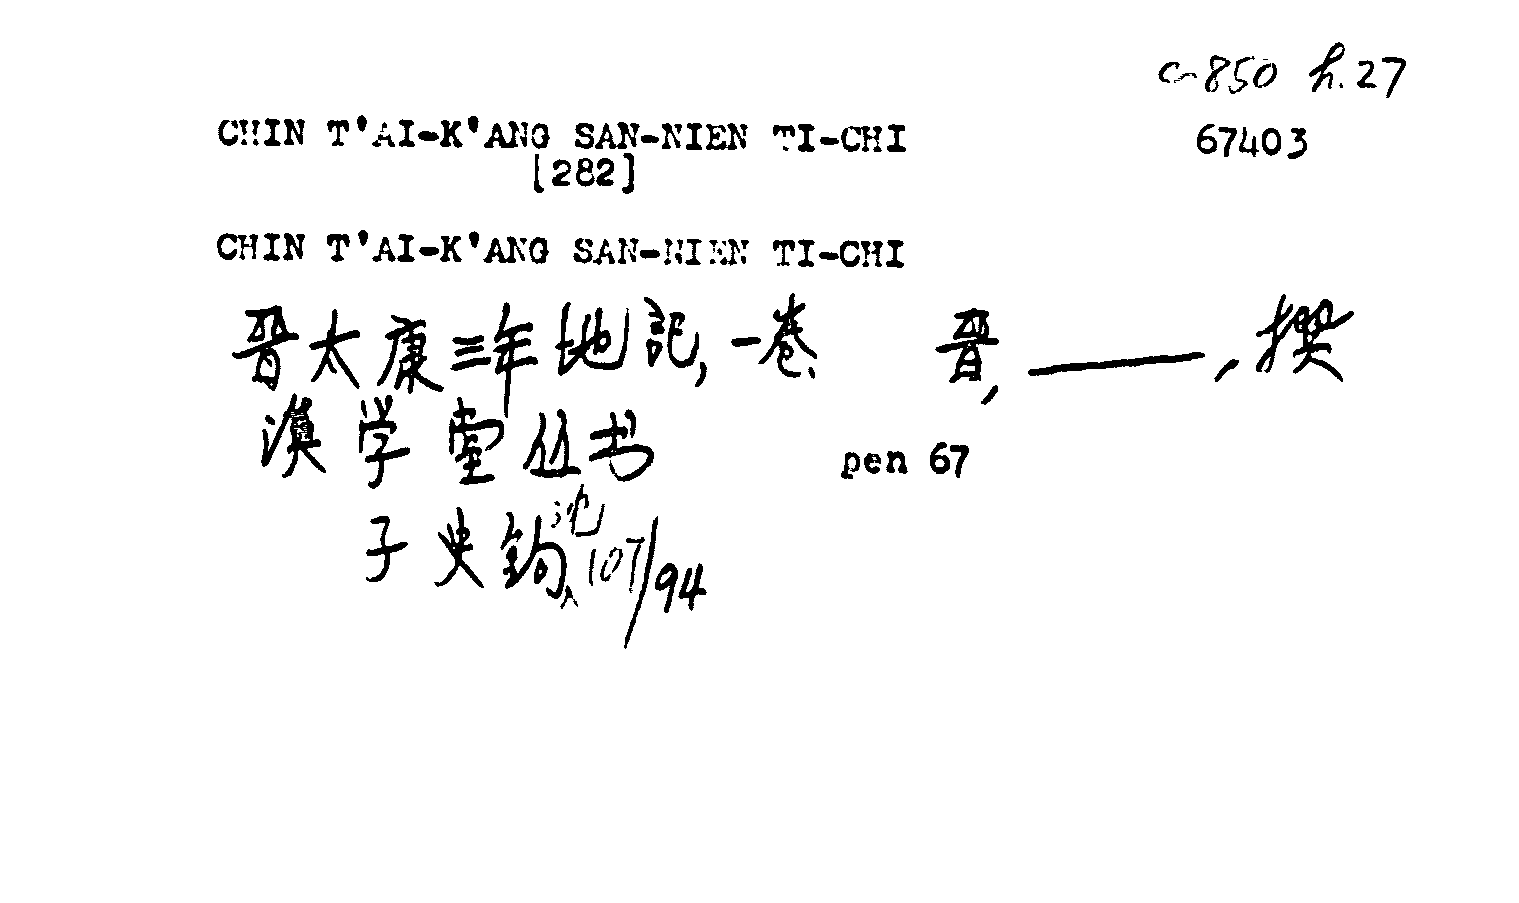 c-850 h.27
CHIN T'AI-K'ANG SAN-NIEN TI-CHI 67403
[282]
CHIN T'AI-K'ANG SAN-NIEN TI-CHI
晋太康三年地記, 一卷. 晋, ———, 撰
漢学堂丛书 pen 67
子史鈎沈 107/94